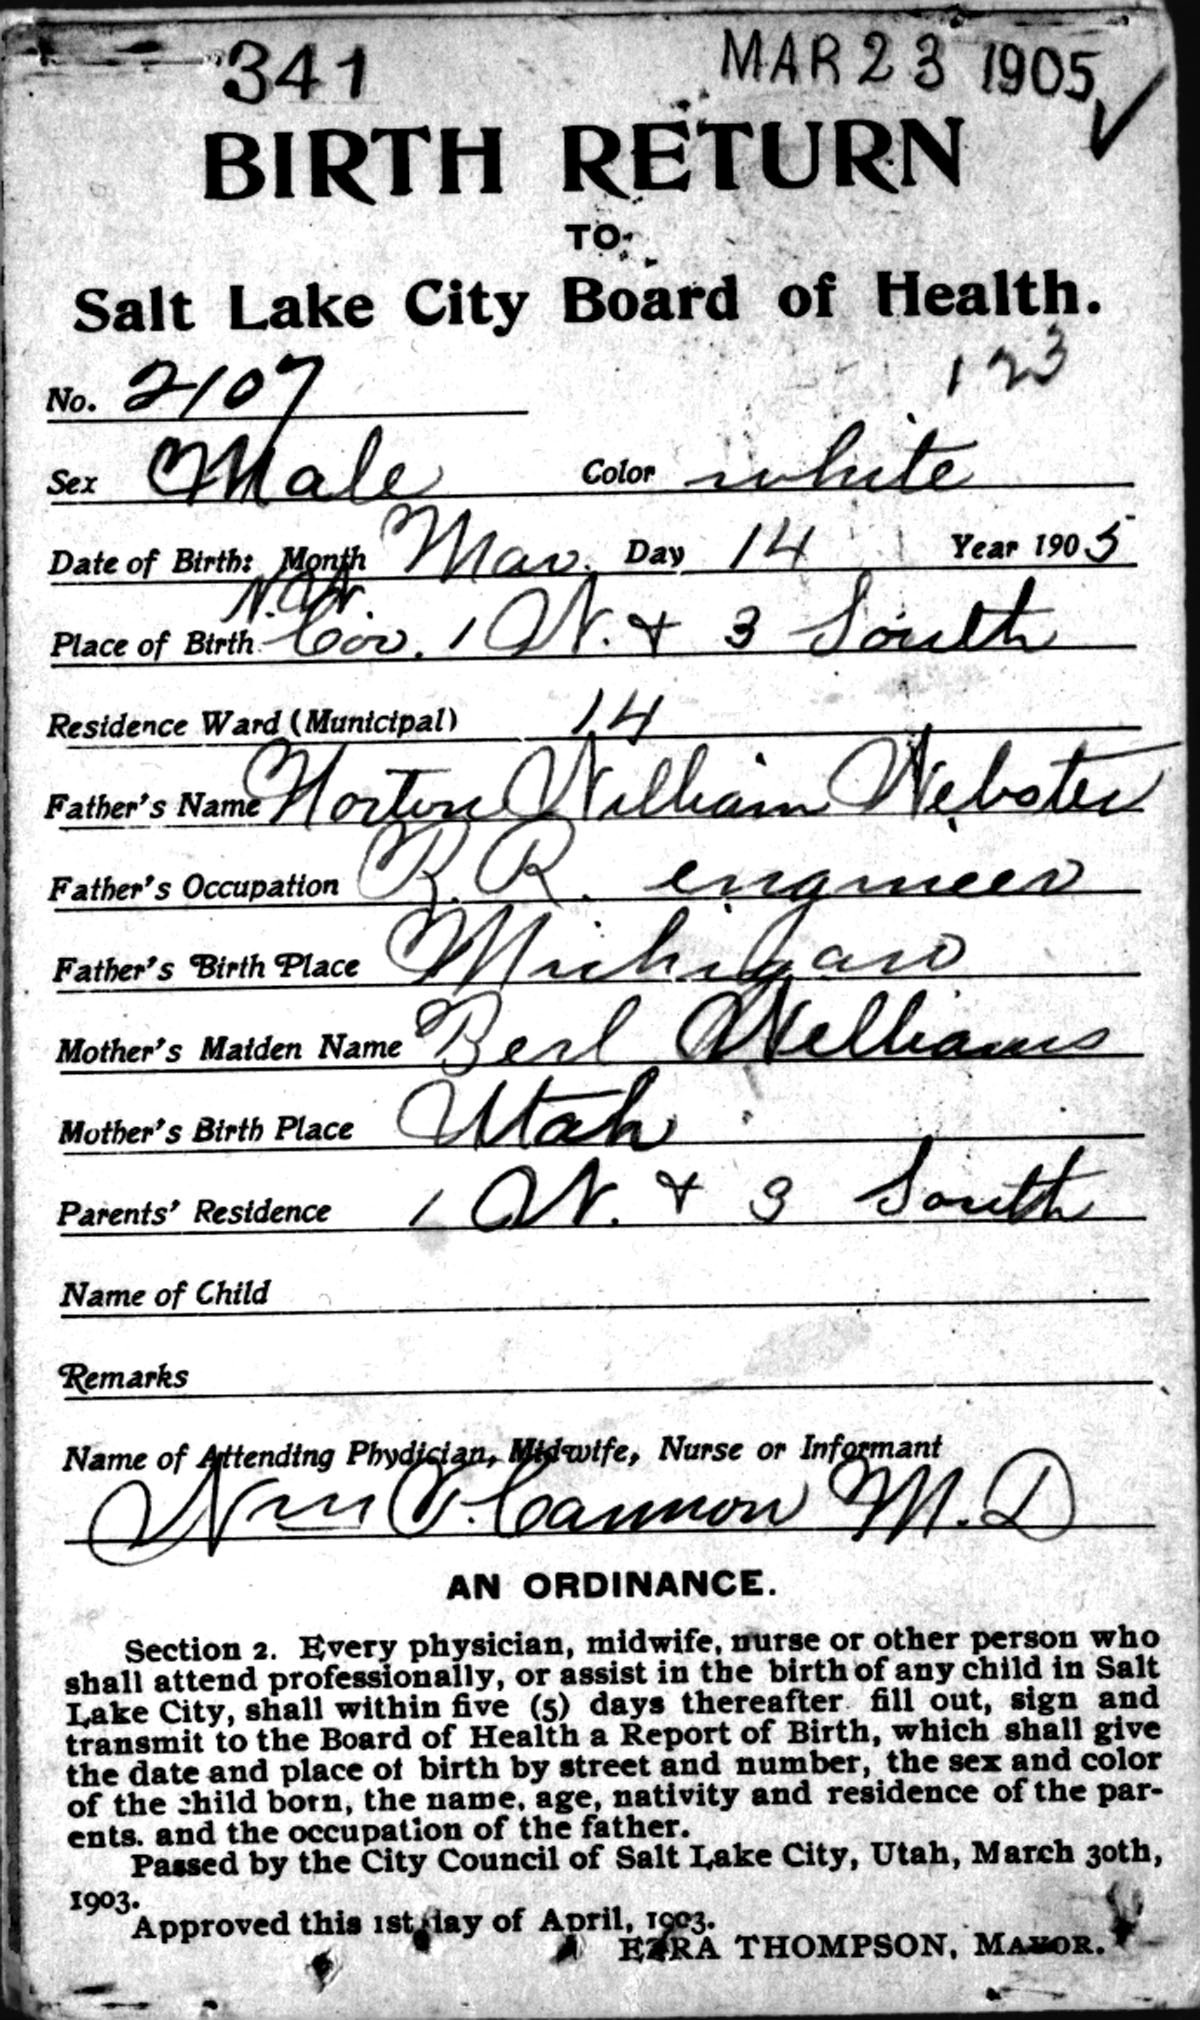 341 MAR 23 1905 ✓
BIRTH RETURN
TO
Salt Lake City Board of Health.
123
No. 2107
Sex Male Color white
Date of Birth: Month Mar. Day 14 Year 1905
N.W.
Place of Birth Cor. 1 W. & 3 South
Residence Ward (Municipal) 14
Father's Name Horton William Webster
Father's Occupation R.R. engineer
Father's Birth Place Michigan
Mother's Maiden Name Berl Williams
Mother's Birth Place Utah
Parents' Residence 1 W. & 3 South
Name of Child
Remarks
Name of Attending Phydician, Midwife, Nurse or Informant
Wm T. Cannon M.D
AN ORDINANCE.
Section 2. Every physician, midwife, nurse or other person who
shall attend professionally, or assist in the birth of any child in Salt
Lake City, shall within five (5) days thereafter fill out, sign and
transmit to the Board of Health a Report of Birth, which shall give
the date and place of birth by street and number, the sex and color
of the child born, the name, age, nativity and residence of the par-
ents. and the occupation of the father.
Passed by the City Council of Salt Lake City, Utah, March 30th,
1903.
Approved this 1st day of April, 1903.
EZRA THOMPSON, MAYOR.